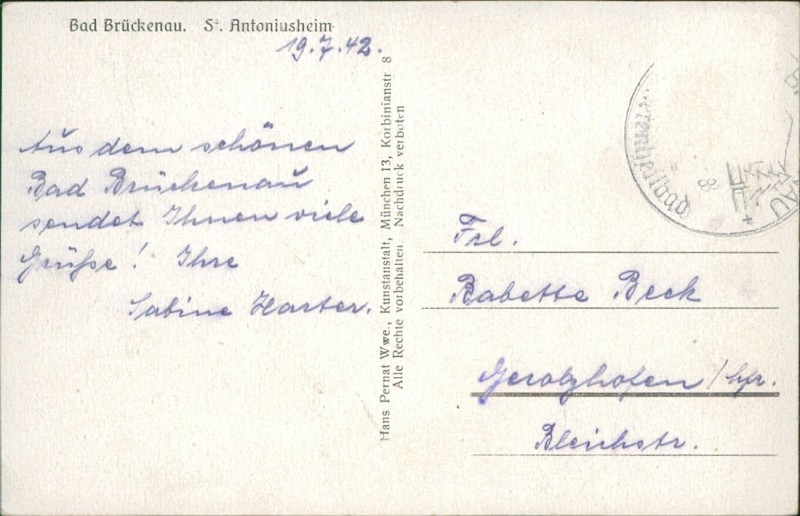 Bad Brückenau. St. Antoniusheim
19.7.42.
Aus dem schönen
Bad Brückenau
sendet Ihnen viele
Grüße! Ihre
Sabine Harter.
Hans Pernat Wwe., Kunstanstalt, München 13, Korbinianstr 8
Alle Rechte vorbehalten Nachdruck verboten
Frl.
Babette Beck
Gerolzhofen / Ufr.
Bleichstr.